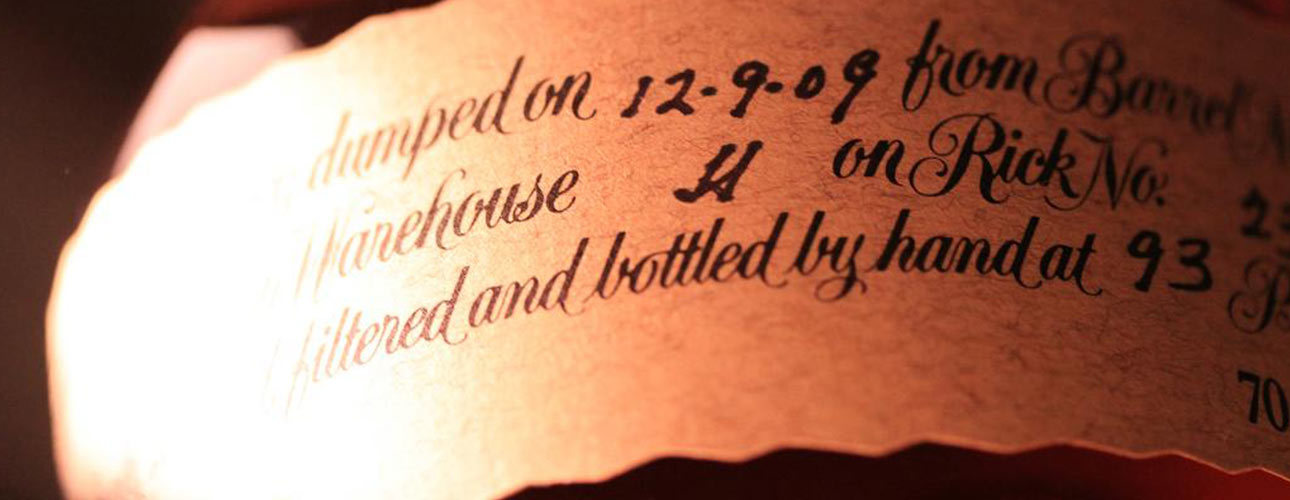 dumped on 12-9-09 from Barrel
Warehouse H on Rick No.
filtered and bottled by hand at 93
70